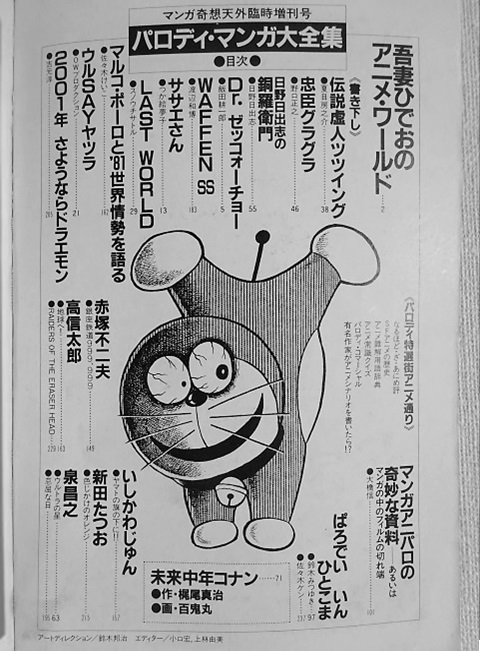 マンガ奇想天外臨時増刊号
パロディ・マンガ大全集
●目次●
吾妻ひでおの
アニメ・ワールド
2
《書き下し》
伝説虚人ツツイング
●夏目房之介
38
忠臣グラグラ
●野口正之
46
日野日出志の
銅羅衛門
●日野日出志
55
Dr.ゼッコォーチョー
●飯田耕一郎
5
WAFFEN SS
●渡辺和博
183
ササエさん
●つか絵夢子
13
LAST WORLD
●スノウチサトル
29
マルコ・ポーロと'81世界情勢を語る
●佐々木けいこ
ウルSAYヤツラ
●OWプロダクション
21
2001年 さようならドラエモン
●吉元淳
205
《パロディ特選街アニメ通り》
なるほど・ざ・あにめ評
SFアニメの歴史
アニメ難解用語辞典
アニメ常識クイズ
パロディ・コマーシャル
有名作家がアニメシナリオを書いたら!?
赤塚不二夫
●銀座鉄道999.999
149
高信太郎
●地球へ!
163
●RAIDERS OF THE ERASER HEAD
229
マンガアニパロの
奇妙な資料 あるいは
マンガの中のフィルムの切れ端
●大橋信
101
いしかわじゅん
●ヤマトの旗の下に!!
157
新田たつお
●色じかけのオレンジ
213
泉昌之
●ウルトラの星
63
●忍屈な日
195
ぱろでぃ いん
ひとこま
●鈴木みつゆき
97
●佐々木ケン
237
未来中年コナン
71
●作・梶尾真治
●画・百鬼丸
アートディレクション/鈴木邦治 エディター/小口宏、上林由美